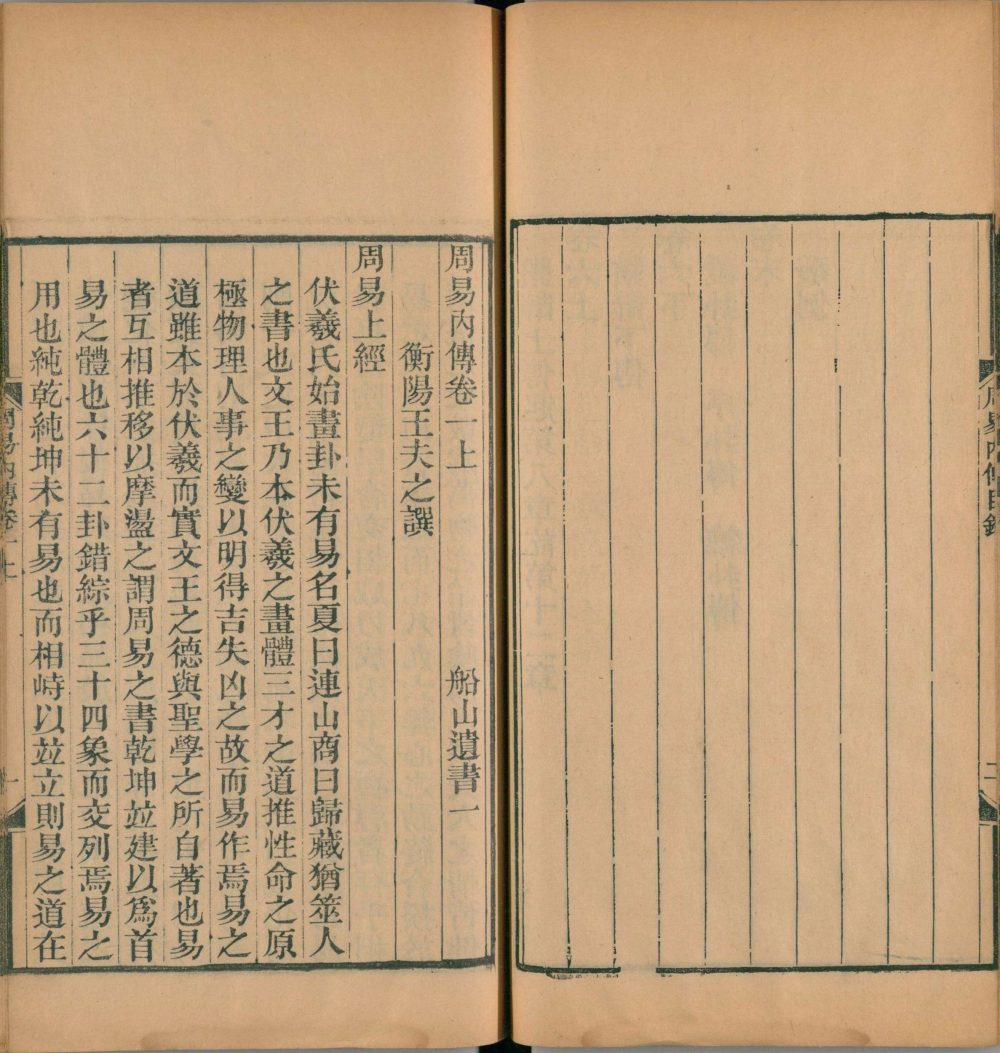 周易內傳目錄
二
周易內傳卷一上
船山遺書一
衡陽王夫之譔
周易上經
伏羲氏始畫卦未有易名夏曰連山商曰歸藏猶筮人
之書也文王乃本伏羲之畫體三才之道推性命之原
極物理人事之變以明得吉失凶之故而易作焉易之
道雖本於伏羲而實文王之德與聖學之所自著也易
者互相推移以摩盪之謂周易之書乾坤竝建以爲首
易之體也六十二卦錯綜乎三十四象而交列焉易之
用也純乾純坤未有易也而相峙以竝立則易之道在
周易內傳卷一上
一